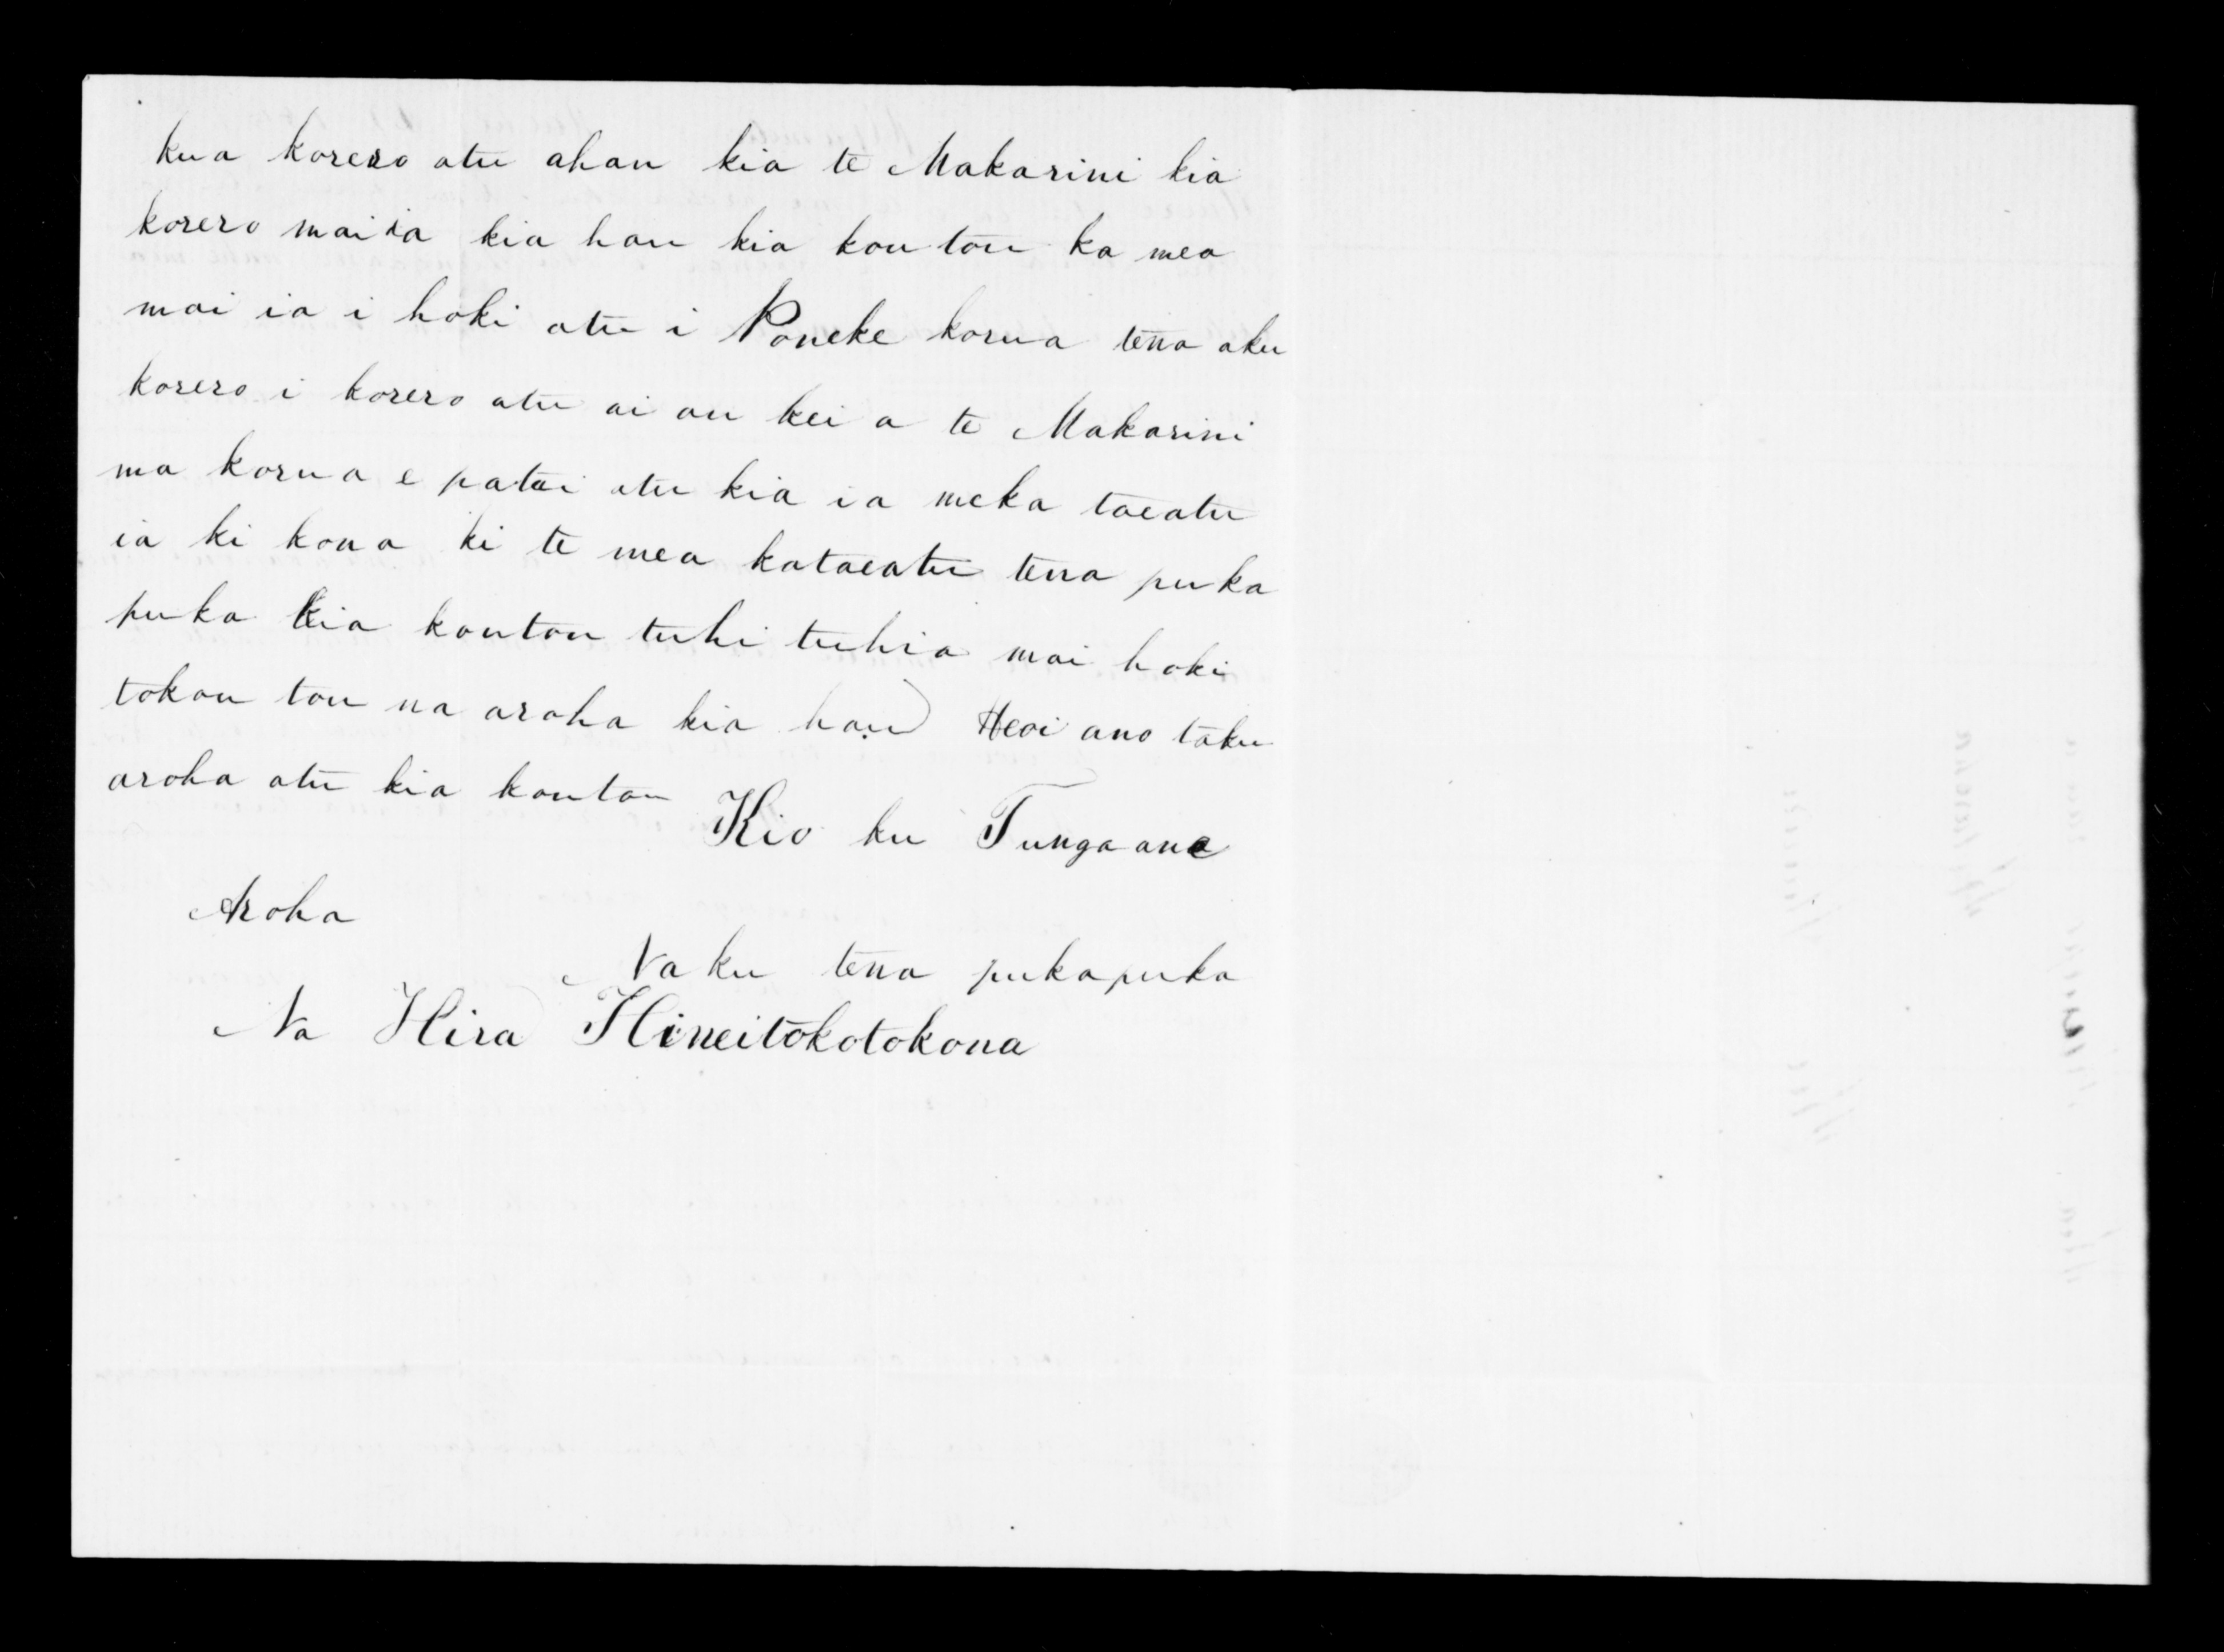 kua korero atu ahau kia te Makarini kia
korero mai ia kia hau kia kou tou ka mea
mai ia i hoki atu i Poneke korua tena aku
korero i korero atu ai au kei a te Makarini
ma korua e patai atu kia ia meka taeatu
ia ki kona ki te mea kataeatu tena puka
puka kia koutou tuhi tuhia mai hoki
tokou tou na aroha kia hau Heoi ano taku
aroha atu kia koutou
Kio ku Tungaane
Aroha
Na ku tena pukapuka
Na Hira Hineitokotokona